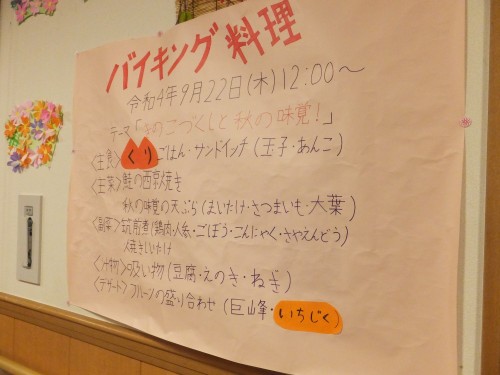 バイキング料理
令和4年9月22日(木)12:00～
テーマ「きのこづくしと秋の味覚!」
<主食>くりごはん・サンドイッチ(玉子・あんこ)
<主菜>鮭の西京焼き
秋の味覚の天ぷら(まいたけ・さつまいも・大葉)
<副菜>筑前煮(鶏肉・人参・ごぼう・こんにゃく・さやえんどう)
焼きしいたけ
<汁物>吸い物(豆腐・えのき・ねぎ)
<デザート>フルーツの盛り合わせ(巨峰・いちじく)